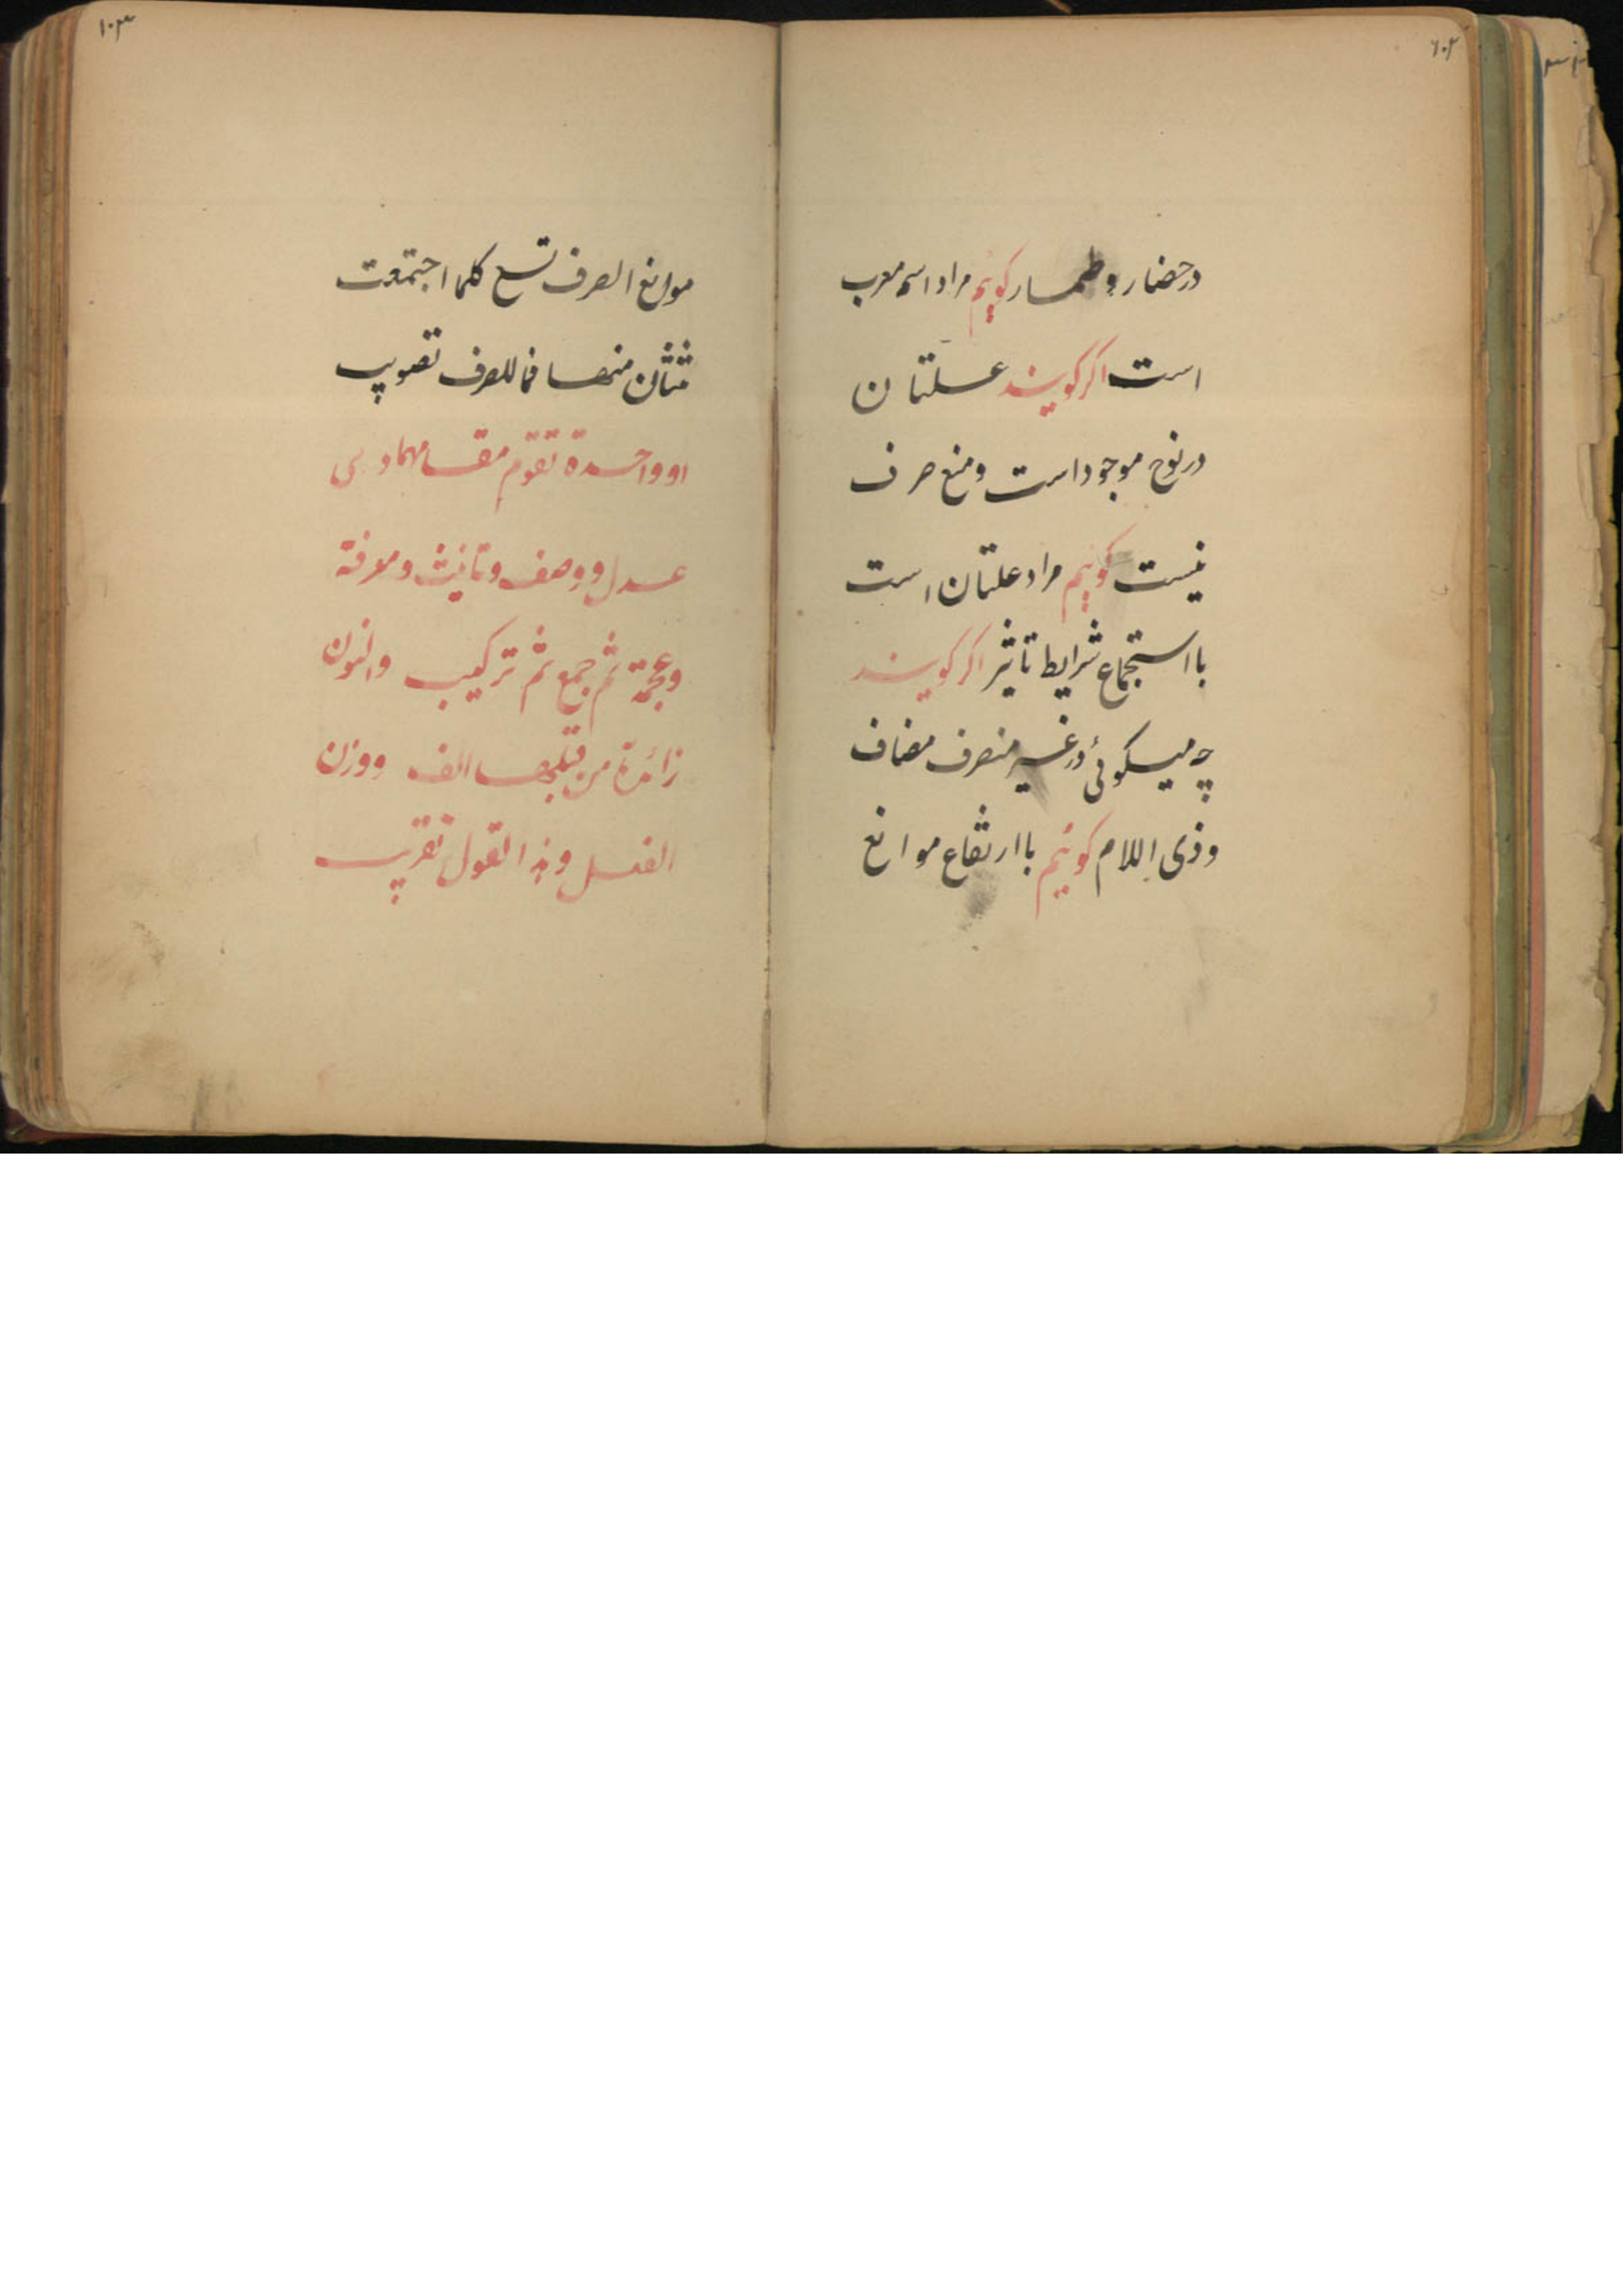 ۱۰۲
در حضار و طمار کوئیم مراد اسم معرب
است اکر کویند علتان
در نوح موجود است و منع صرف
نیست کوئیم مراد علتان است
با استجماع شرایط تاثیر اکر کویند
چه میکوئی در غیر منصرف مضاف
و ذی اللام کوئیم با ارتفاع موانع
۱۰۳
موانع الصرف تسع کلما اجتمعت
ثنتان منها فما للصرف تصویب
او واحدة تقوم مقامهما و هی
عدل و وصف و تانیث و معرفة
و عجمة ثم جمع ثم ترکیب والنون
زائدة من قبلها الف و وزن
الفعل و هذا القول تقریب